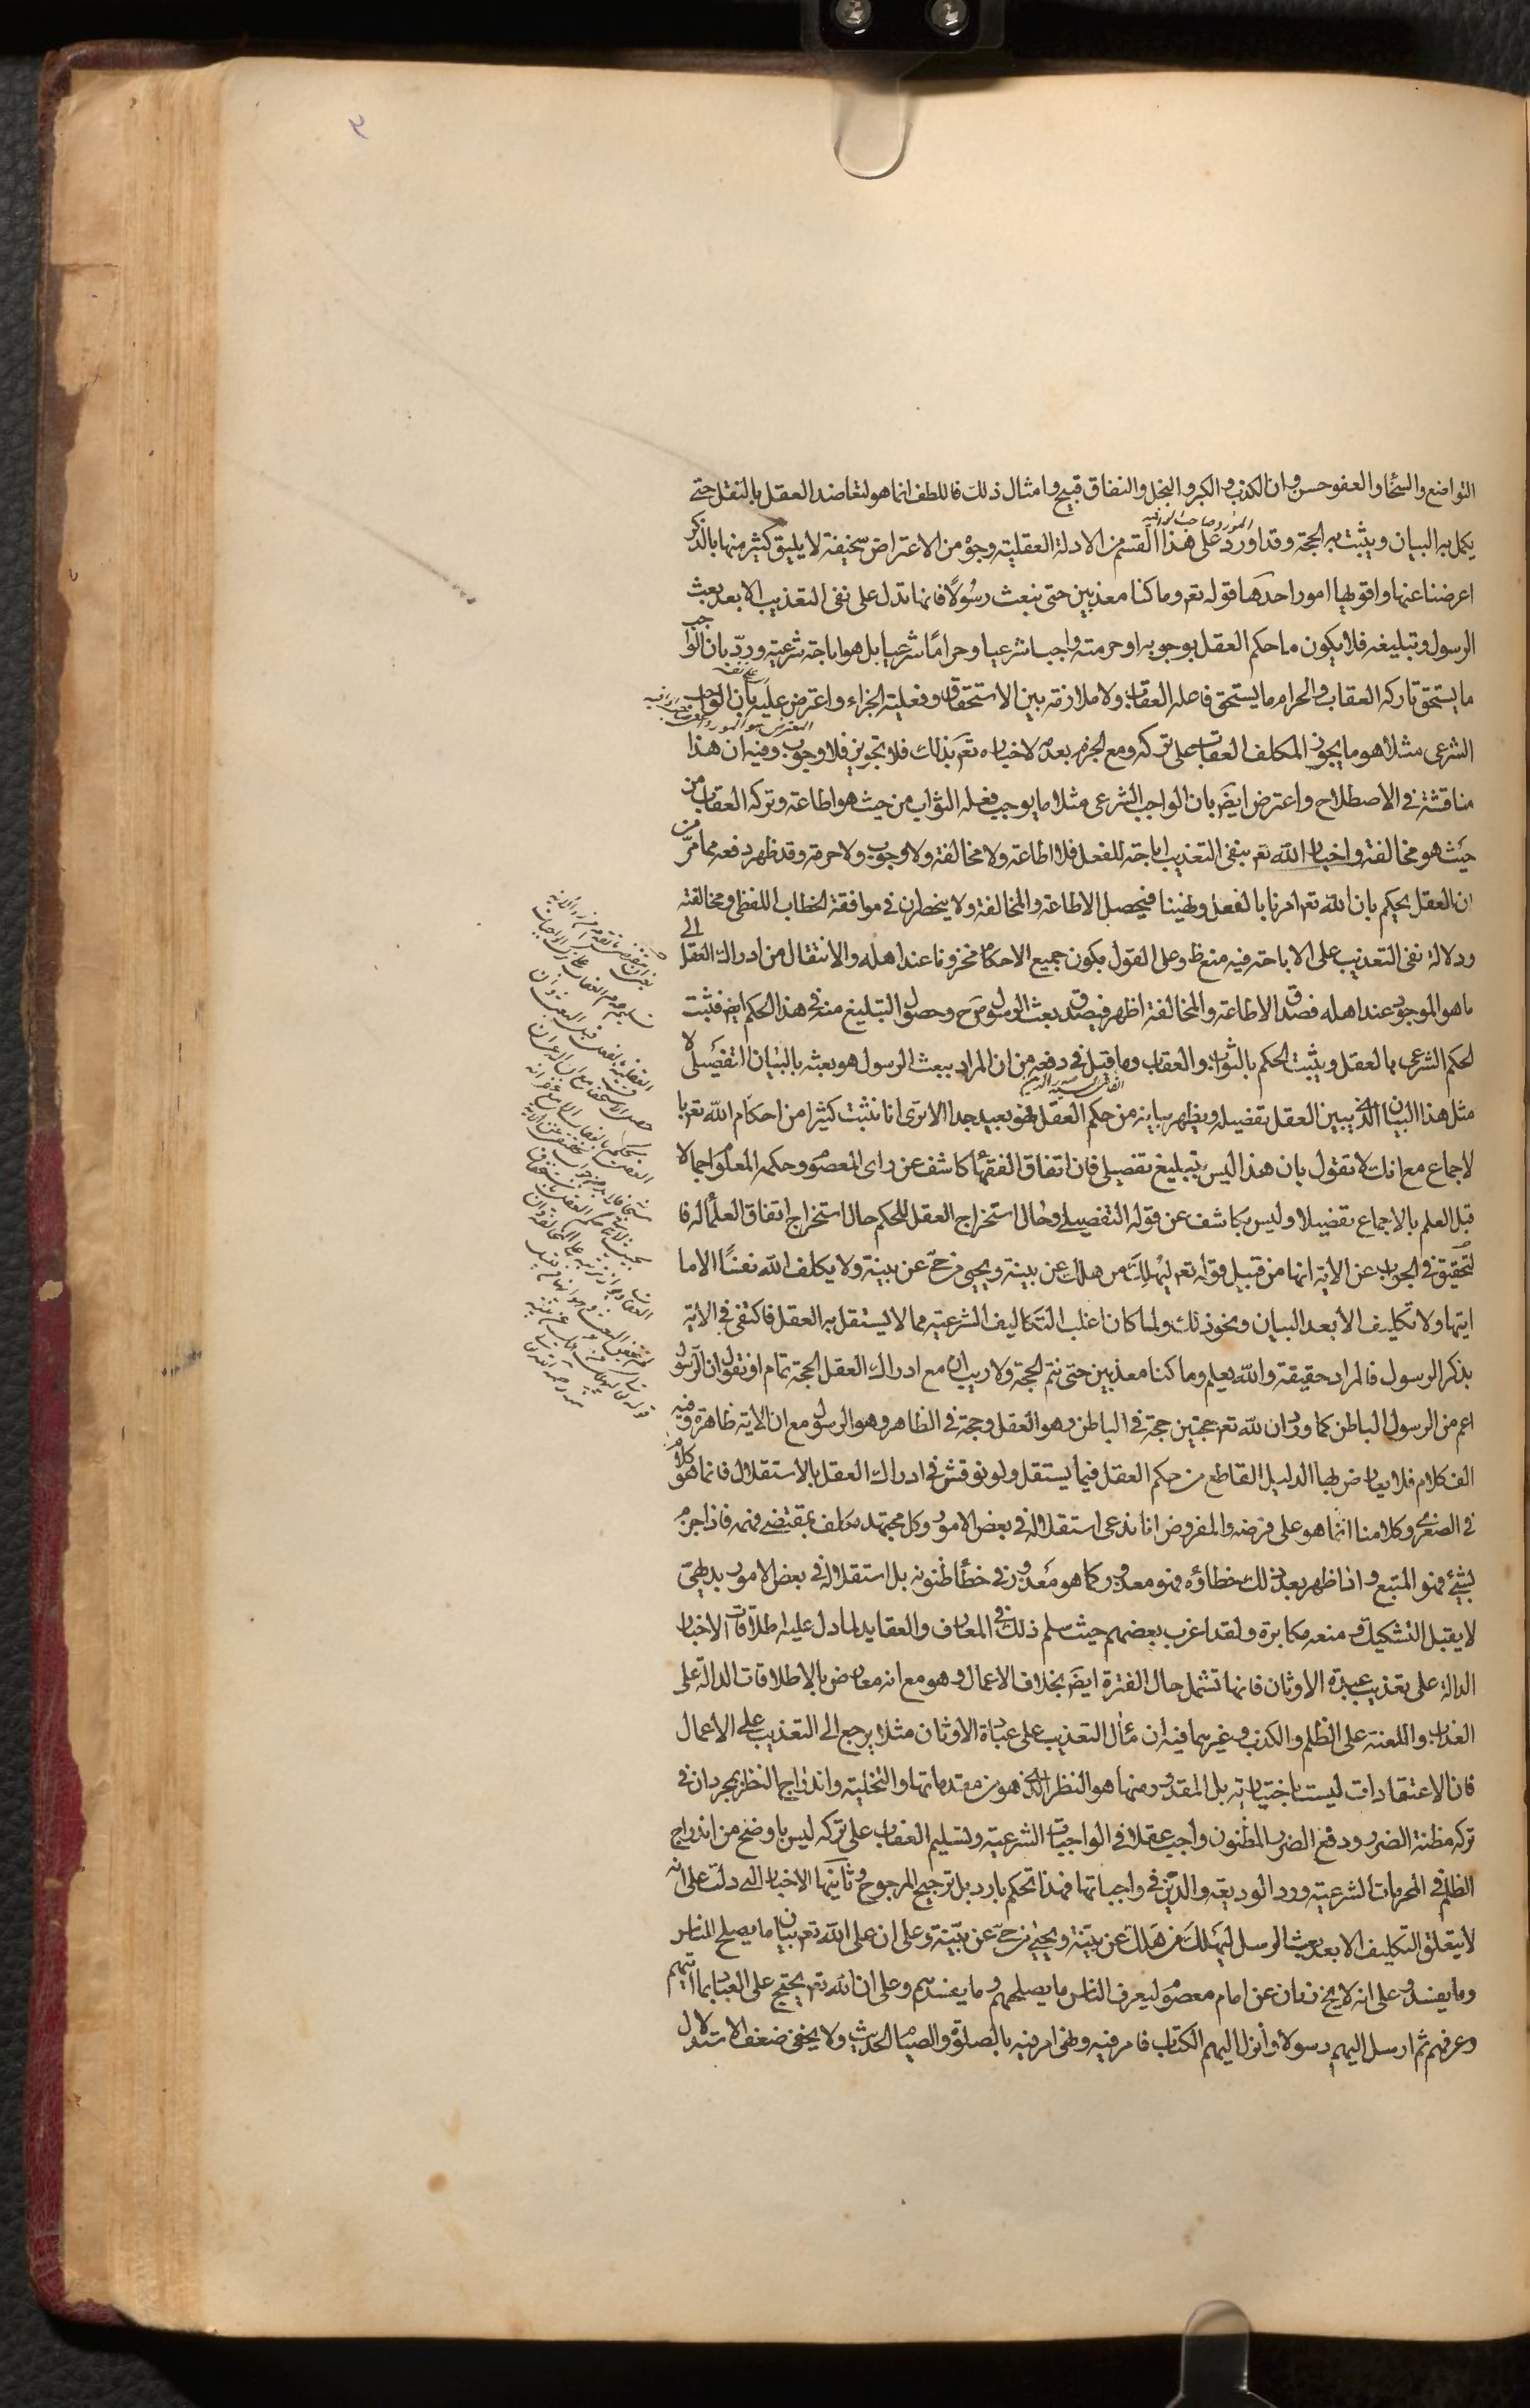 ٣
التواضع والسخا والعفو حسن وان الكذب والكبر والبخل والنفاق قبيح وامثال ذلك فاللطف انما هو لتعاضد العقل بالنقل حتى
المورد صاحب الوافيه
يكمل به البيان ويثبت به الحجة وقد اورد على هذا القسم من الادلة العقلية وجوه من الاعتراض سخيفة لا يليق كثير منها بالذكر
اعرضنا عنها واقويها امور احدها قوله تعم وما كنا معذبين حتى نبعث رسولاً فانها تدل على نفى التعذيب الا بعد بعث
الرسول وتبليغه فلا يكون ما حكم العقل بوجوبه او حرمته واجبا شرعيا وحرامًا شرعيا بل هو اباحة شرعية وردّ بان الواجب
ما يستحق تاركه العقاب والحرام ما يستحق فاعله العقاب ولا ملازمة بين الاستحقاق وفعلية الجزاء واعترض عليه بان الواجب
المعترض هو المورد
الشرعى مثلا هو ما يجوز المكلف العقاب على تركه ومع الجزم بعدمه لاخباره تعم بذلك فلا تجويز فلا وجوب وفيه ان هذا
مناقشة فى الاصطلاح واعترض ايضَ بان الواجب الشرعى مثلا ما يوجب فعله الثواب من حيث هو اطاعة وتركه العقاب من
حيث هو مخالفة واخبار الله تعم بنفى التعذيب اباحة للفعل فلا اطاعة ولا مخالفة ولا وجوب ولا حرمة وقد ظهر دفعه مما مرّ من
ان العقل يحكم بان الله تعم امرنا بالفعل ونهينا فيحصل الاطاعة والمخالفة ولا ينحصران فى موافقة الخطاب اللفظى ومخالفته
ودلالة نفى التعذيب على الاباحة فيه منع ظ وعلى القول بكون جميع الاحكام مخزونا عند اهله والانتقال من ادراك العقل الى
ما هو الموجود عند اهله فصدق الاطاعة والمخالفة اظهر فيصدق بعث الرسول ح وحصول التبليغ منه فى هذا الحكم ايض فثبت
الحكم الشرعى بالعقل ويثبت الحكم بالثواب والعقاب وما قيل فى دفعه من ان المراد ببعث الرسول هو بعثه بالتبيان التفصيلى لا
الفاضل السيد صدر الدين
مثل هذا البيان الذى يبين العقل تفصيله ويظهر بيانه من حكم العقل فهو بعيد جدا الا ترى انا نثبت كثيرا من احكام الله تعم با
لاجماع مع انك لا تقول بان هذا ليس بتبليغ تفصيلى فان اتفاق الفقهاء كاشف عن راى المعصوم وحكمه المعلوم اجمالا
قبل العلم بالاجماع تفصيلا وليس بكاشف عن قوله التفصيلى وحال استخراج العقل للحكم حال استخراج اتفاق العلماء له فا
لتحقيق فى الجواب عن الاية انها من قبيل قوله تعم ليهلك من هلك عن بينة ويحيى من حيّ عن بينة ولا يكلف الله نفسًا الا ما
اتيها ولا تكليف الا بعد البيان ونحو ذلك ولما كان اغلب التكاليف الشرعية مما لا يستقل به العقل فاكتفى فى الاية
بذكر الرسول فالمراد حقيقة والله يعلم وما كنا معذبين حتى نتم الحجة ولا ريب ان مع ادراك العقل الحجة تمام او نقول ان الرسول
اعم من الرسول الباطن كما ورد ان لله تعم حجتين حجة فى الباطن وهو العقل وحجة فى الظاهر وهو الرسول مع ان الاية ظاهرة وفيه
الف كلام فلا يعارض بها الدليل القاطع من حكم العقل فيما يستقل ولو نوقش فى ادراك العقل بالاستقلال فانما هو كلام
فى الصغرى وكلامنا انما هو على فرضه والمفروض انا ندعى استقلاله فى بعض الامور وكل مجتهد مكلف بمقتضى فهمه فاذا جزم
بشئ فهو المتبع واذا ظهر بعد ذلك خطاؤه فهو معذور كما هو معذور فى خطأ ظنونه بل استقلاله فى بعض الامور بديهى
لا يقبل التشكيك ومنعه مكابرة ولقد اغرب بعضهم حيث سلم ذلك فى المعارف والعقايد لما دل عليه اطلاقات الاخبار
الدالة على تعذيب عبدة الاوثان فانها تشمل حال الفترة ايضَ بخلاف الاعمال وهو مع انه معارض بالاطلاقات الدالة على
العذاب واللعنة على الظلم والكذب وغيرهما فيه ان مئال التعذيب على عبادة الاوثان مثلا يرجع الى التعذيب على الاعمال
فان الاعتقادات ليست باختيارية بل المقدور منها هو النظر الذى هو من مقدماتها والتخلية واندراج النظر بمجرد ان فى
تركه مظنة الضرر ودفع الضرر المظنون واجب عقلا فى الواجبات الشرعية وتسليم العقاب على تركه ليس باوضح من اندراج
الظلم فى المحرمات الشرعية ورد الوديعة والدّين فى واجباتها فهذا تحكم بارد بل ترجيح المرجوح وثانيها الاخبار التى دلت على انه
لا يتعلق التكليف الا بعد بعث الرسل ليهلك من هلك عن بيّنة ويحيى من حيّ عن بيّنة وعلى ان على الله تعم بيان ما يصلح للناس
وما يفسد وعلى انه لا يخ زمان عن امام معصوم ليعرف الناس ما يصلحهم وما يفسدهم وعلى ان الله تعم يحتج على العباد بما اتيهم
وعرفهم ثم ارسل اليهم رسولا وانزل اليهم الكتاب فامر فيه ونهى امر فيه بالصلوة والصيام الحديث ولا يخفى ضعف الاستدلال